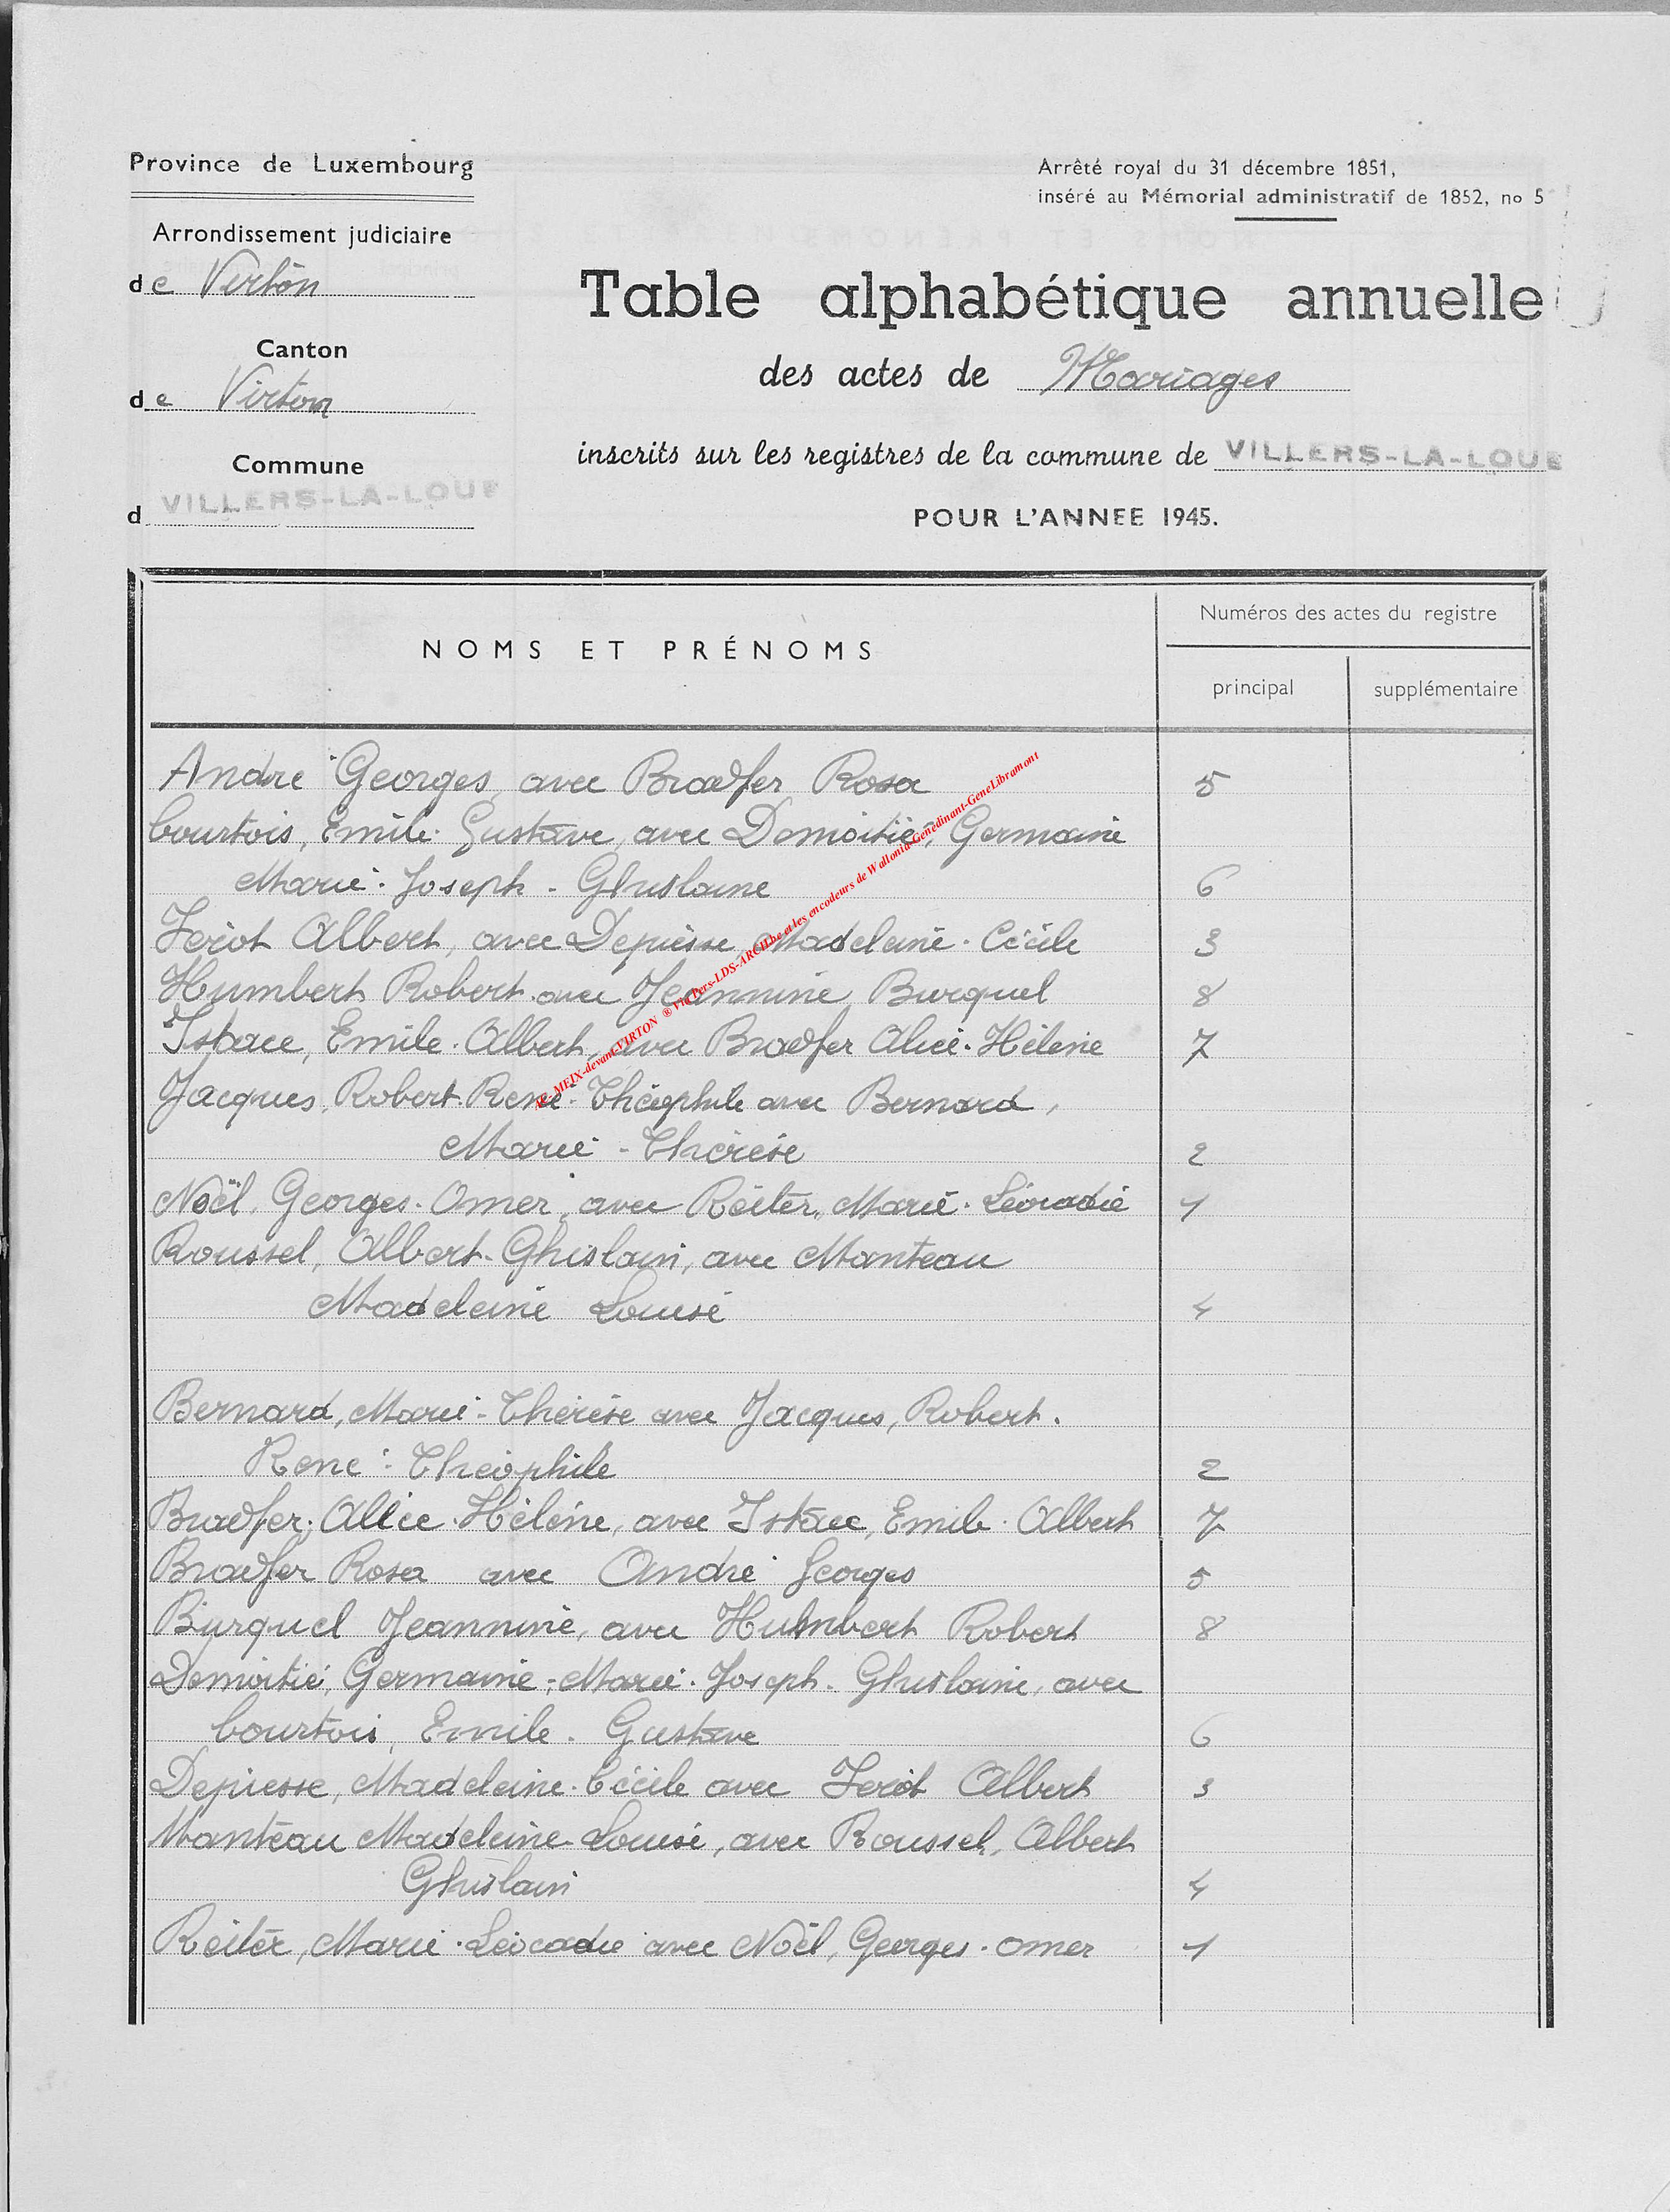 Province de Luxembourg
Arrêté royal du 31 décembre 1851,
inséré au Mémorial administratif de 1852, no 5
Arrondissement judiciaire
de Virton
Table alphabétique annuelle
Canton
des actes de Mariages
de Virton
inscrits sur les registres de la commune de VILLERS-LA-LOUE
Commune
d VILLERS-LA-LOUE
POUR L'ANNEE 1945.
NOMS ET PRÉNOMS
Numéros des actes du registre
principal
supplémentaire
André Georges, avec Bradfer Rosa 5
Courtois, Emile. Gustave, avec Demoitié, Germaine
Marie. Joseph. Ghislaine 6
Feriot Albert, avec Depiesse, Madeleine. Cécile 3
Humbert Robert avec Jeannine Burquel 8
Istace, Emile. Albert, avec Bradfer Alice. Hélène 7
Jacques, Robert. René. Théophile avec Bernard,
Marie - Thérèse 2
Noël, Georges. Omer, avec Reiter, Marie. Léocadie 1
Roussel, Albert-Ghislain, avec Manteau
Madeleine Louise 4
Bernard, Marie-Thérèse avec Jacques, Robert.
René. Théophile 2
Bradfer. Alice. Hélène, avec Istace, Emile. Albert 7
Bradfer Rosa avec André Georges 5
Burquel Jeannine, avec Humbert Robert 8
Demoitié, Germaine. Marie. Joseph. Ghislaine, avec
Courtois, Emile. Gustave 6
Depiesse, Madeleine. Cécile avec Feriot Albert 3
Manteau Madeleine-Louise, avec Roussel, Albert
Ghislain 4
Reiter, Marie. Léocadie avec Noël, Georges. Omer 1
MEIX-devant-VIRTON ® Via Pers-LDS-ARCH.be et les encodeurs de Wallonia-Genedinant-GeneLibramont